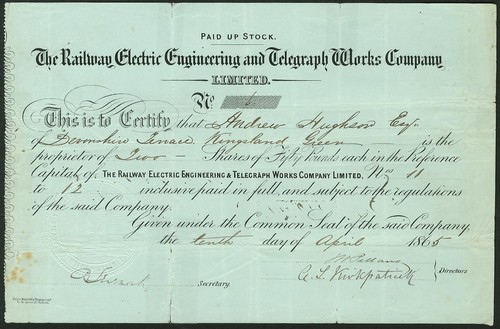 PAID UP STOCK.
The Railway Electric Engineering and Telegraph Works Company
LIMITED.
No
This is to Certify that Andrew Hughson Esqr.
of Devonshire Terrace Kingsland Green is the
proprietor of Two – Shares of Fifty Pounds each in the Preference
Capital of THE RAILWAY ELECTRIC ENGINEERING & TELEGRAPH WORKS COMPANY LIMITED, Nos 11
to 12 inclusive paid in full, and subject to the regulations
of the said Company.
Given under the Common Seal of the said Company
the tenth day of April 1865
A. L. Kirkpatrick
Directors
Secretary